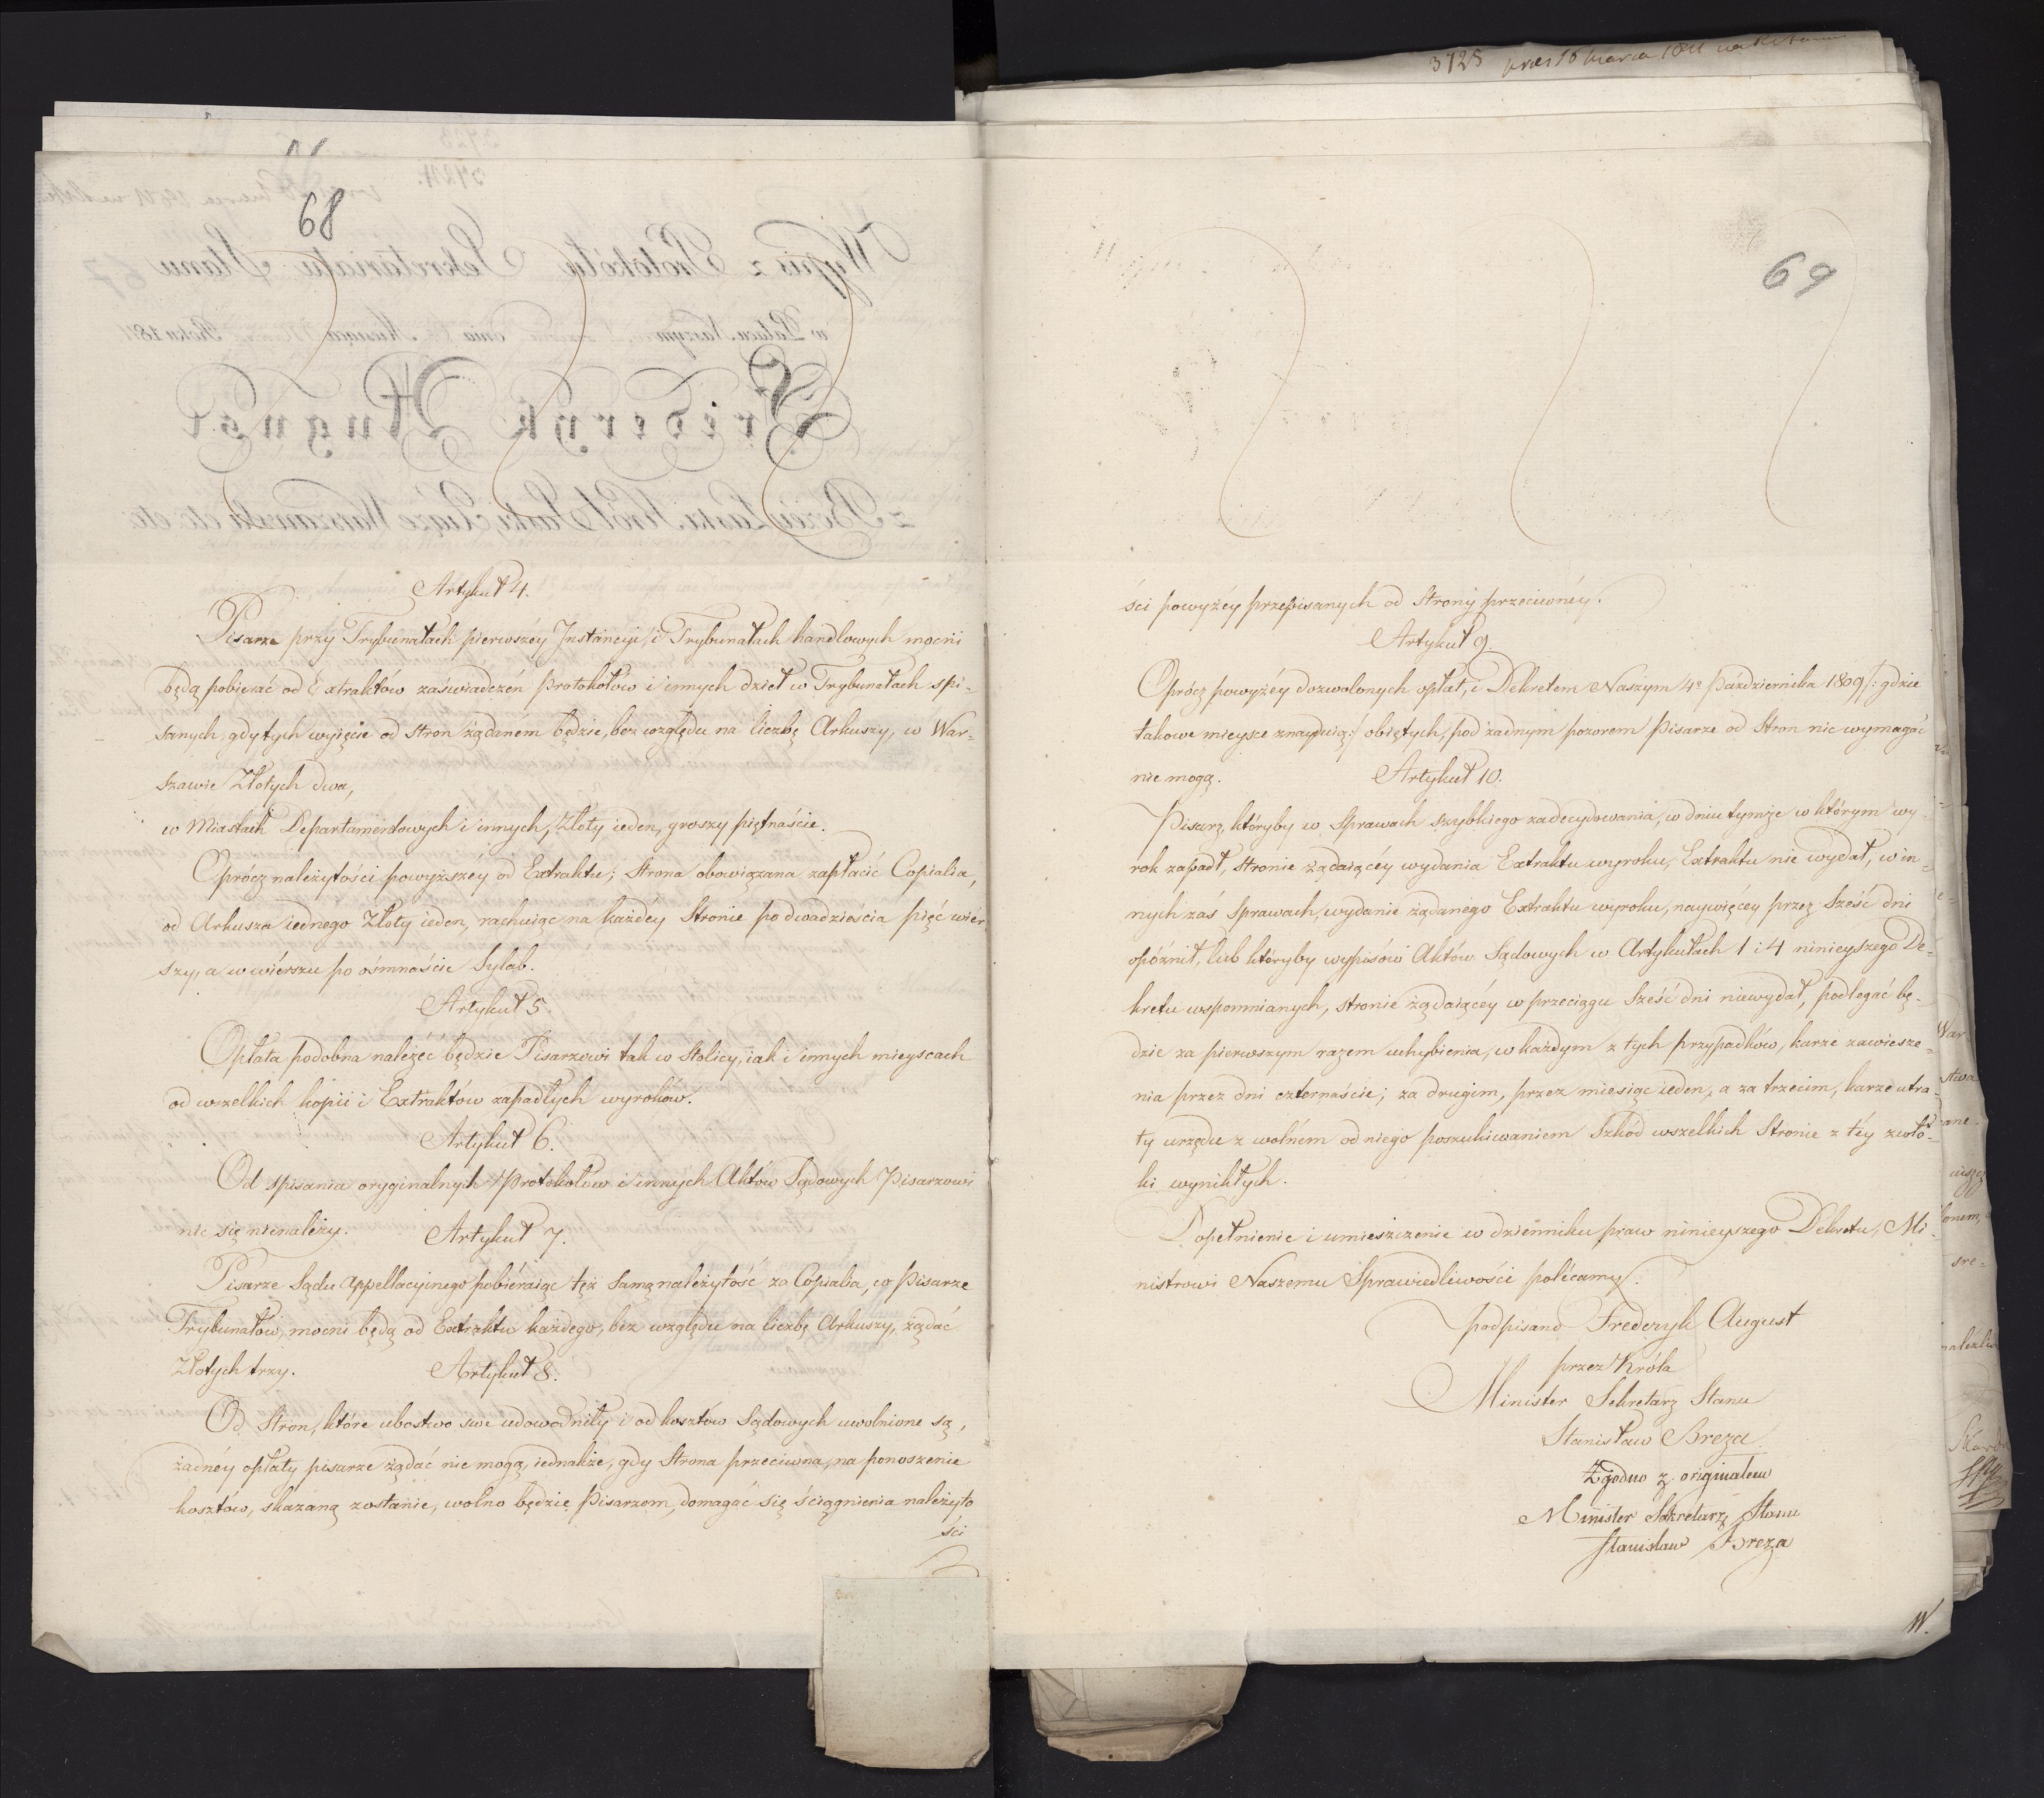 68
Artykuł 4.
Pisarze przy Trybunałach pierwszéy Instancyi, i Trybunałach handlowych mocni
będą pobierać od Extraktów zaświadczeń Protokołów i innych dzieł w Trybunałach spi-
sanych, gdy tych wyięcie od stron żądaném będzie, bez względu na liczbę Arkuszy, w War-
szawie Złotych dwa,
w Miastach Departamentowych i innych, Złoty ieden, groszy piętnaście.
Oprócz należytości powyższéy od Extraktu; Strona obowiązana zapłacić Copialia,
od Arkusza iednego Złoty ieden, rachuiąc na każdéy Stronie po dwadzieścia pięć wiér
szy, a w wiérszu po ośmnaście Sylab.
Artykuł 5.
Opłata podobna należéć będzie Pisarzowi tak w Stolicy, iak i innych mieyscach
od wszelkich kopii i Extraktów zapadłych wyroków.
Artykuł 6.
Od spisania oryginalnych Protokołów i innych Aktów Sądowych Pisarzowi
nic się nienależy. Artykuł 7.
Pisarze Sądu Appellacyinego pobiéraiąc też samą należytość za Copialia, co Pisarze
Trybunałów, mocni będą od Extraktu każdego, bez względu na liczbę Arkuszy, żądać
Złotych trzy. Artykuł 8.
Od Stron, które ubostwo swe udowodniły i od kosztów Sądowych uwolnione są,
żadnéy opłaty pisarze żądać nie mogą, iednakże, gdy Strona przeciwna, na ponoszenie
kosztów, skazaną zostanie, wolno będzie Pisarzom, domagać się ściągnienia należyto
ści
3725
69
ści powyżéy przepisanych od Strony przeciwnéy.
Artykuł 9.
Oprócz powyżéy dozwolonych opłat, i Dekretem Naszym 4º Października 1809 /: gdzie
takowe mieysce znayduią :/ obiętych, pod żadnym pozorem Pisarze od Stron nic wymagać
nie mogą. Artykuł 10.
Pisarz któryby w Sprawach szybkiego zadecydowania, w dniu tymże w którym wy-
rok zapadł, stronie żądaiącéy wydania Extraktu wyroku, Extraktu nie wydał, w in-
nych zaś Sprawach, wydanie żądanego Extraktu wyroku, naywięcéy przez Sześć dni
opóźnił, lub któryby wypisów Aktów Sądowych w Artykułach 1 i 4 ninieyszego De-
kretu wspomnianych, stronie żądaiącéy w przeciągu Sześć dni niewydał, podlegać bę-
dzie za pierwszym razem uchybienia, w każdym z tych przypadków, karze zawiesze-
nia przez dni czternaście; za drugim, przez miesiąc ieden, a za trzecim, karze utra-
ty urzędu z wolném od niego poszukiwaniem Szkód wszelkich Stronie z téy zwło-
ki wynikłych.
Dopełnienie i umieszczenie w dzienniku praw ninieyszego Dekretu, Mi-
nistrowi Naszemu Sprawiedliwości polécamy.
podpisano Frederyk August
przez Króla
Minister Sekretarz Stanu
Stanisław Breza
Zgodno z originałem
Minister Sekretarz Stanu
Stanisław Breza
W.